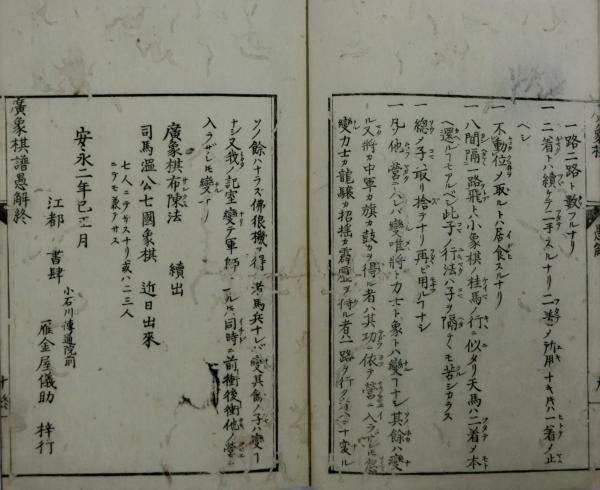 一路二路ト數フルナリ
一二着トハ續ケテ二手スルナリ二着ノ所用ナキ片ハ一着ノ止
ヘシ
一不動位ノ取ルトハ居食スルナリ
一八間隔一路飛トハ小象棋ノ桂馬ノ行ニ似タリ天馬ハ二着メ本
ヘ還ルヿモアルベシ此子ノ行法ハ子ヲ隔テヽモ苦シカラス
一總ノ子取リ捨テナリ再ビ用ルヿナシ
一夕他ノ營ニ入レバ變唯將ト力士ト象トハ變ヿナシ其餘ハ變
ル又將カ中軍カ旗カ鼓カヲ得ル者ハ其功ニ依テ營ニ入ラザレ𪜈
變力士カ龍驤カ招揺カ霹靂ヲ得ル者ハ一路ヲ行ク
ソノ餘ハナラス佛狼機ヲ得若馬兵ナレバ變其爲ノ子ハ變ヿ
ナシ又我ノ記室變テ軍師ナルキハ同時ニ前衝後衝他ノ營ニ
入ラザレ𪜈變ナリ
廣象棋布陳法 續出
司馬温公七國象棋 近日出來
七人ニテサスナリ或ハ二三人
ニテモ義テサス
安永二年巳正月
江都 書肆 小石川傳通院前
雁金屋儀助 梓行
廣象棋譜愚解終